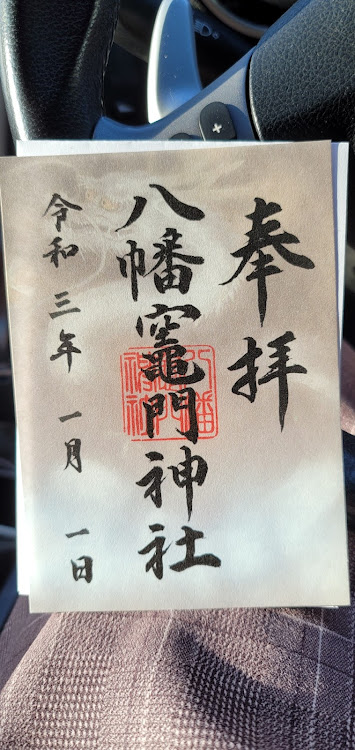 奉拝
八幡竈門神社
令和三年一月一日